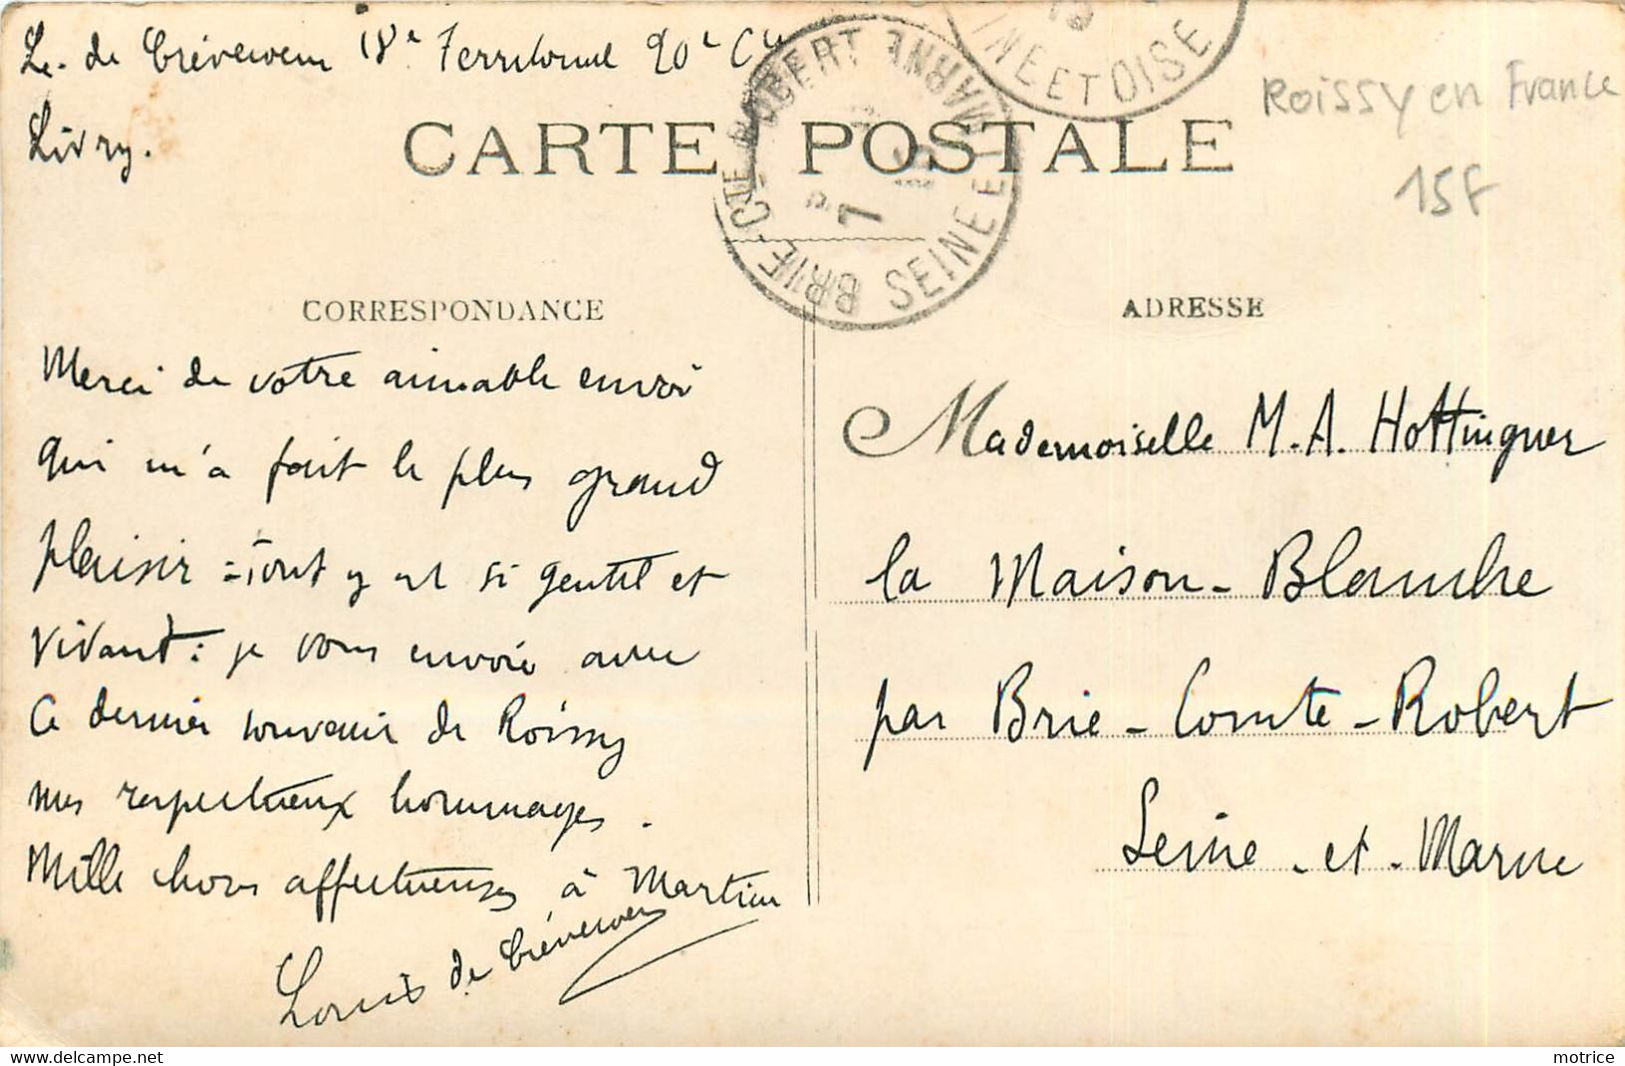 L. de Crèvecoeur 18e Territorial 20e Cie
Livry.
Roissy en France
15F
CARTE POSTALE
BRIE-CTE ROBERT SEINE ET MARNE
7
15
INE ET OISE
CORRESPONDANCE
ADRESSE
Merci de votre aimable envoi
qui m'a fait le plus grand
plaisir = Tout y est si gentil et
vivant : je vous envoie avec
ce dernier souvenir de Roissy
mes respectueux hommages.
Mille choses affectueuses à Martin
Louis de Crèvecoeur
Mademoiselle M. A. Hottinguer
la Maison-Blanche
par Brie-Comte-Robert
Seine-et-Marne
motrice